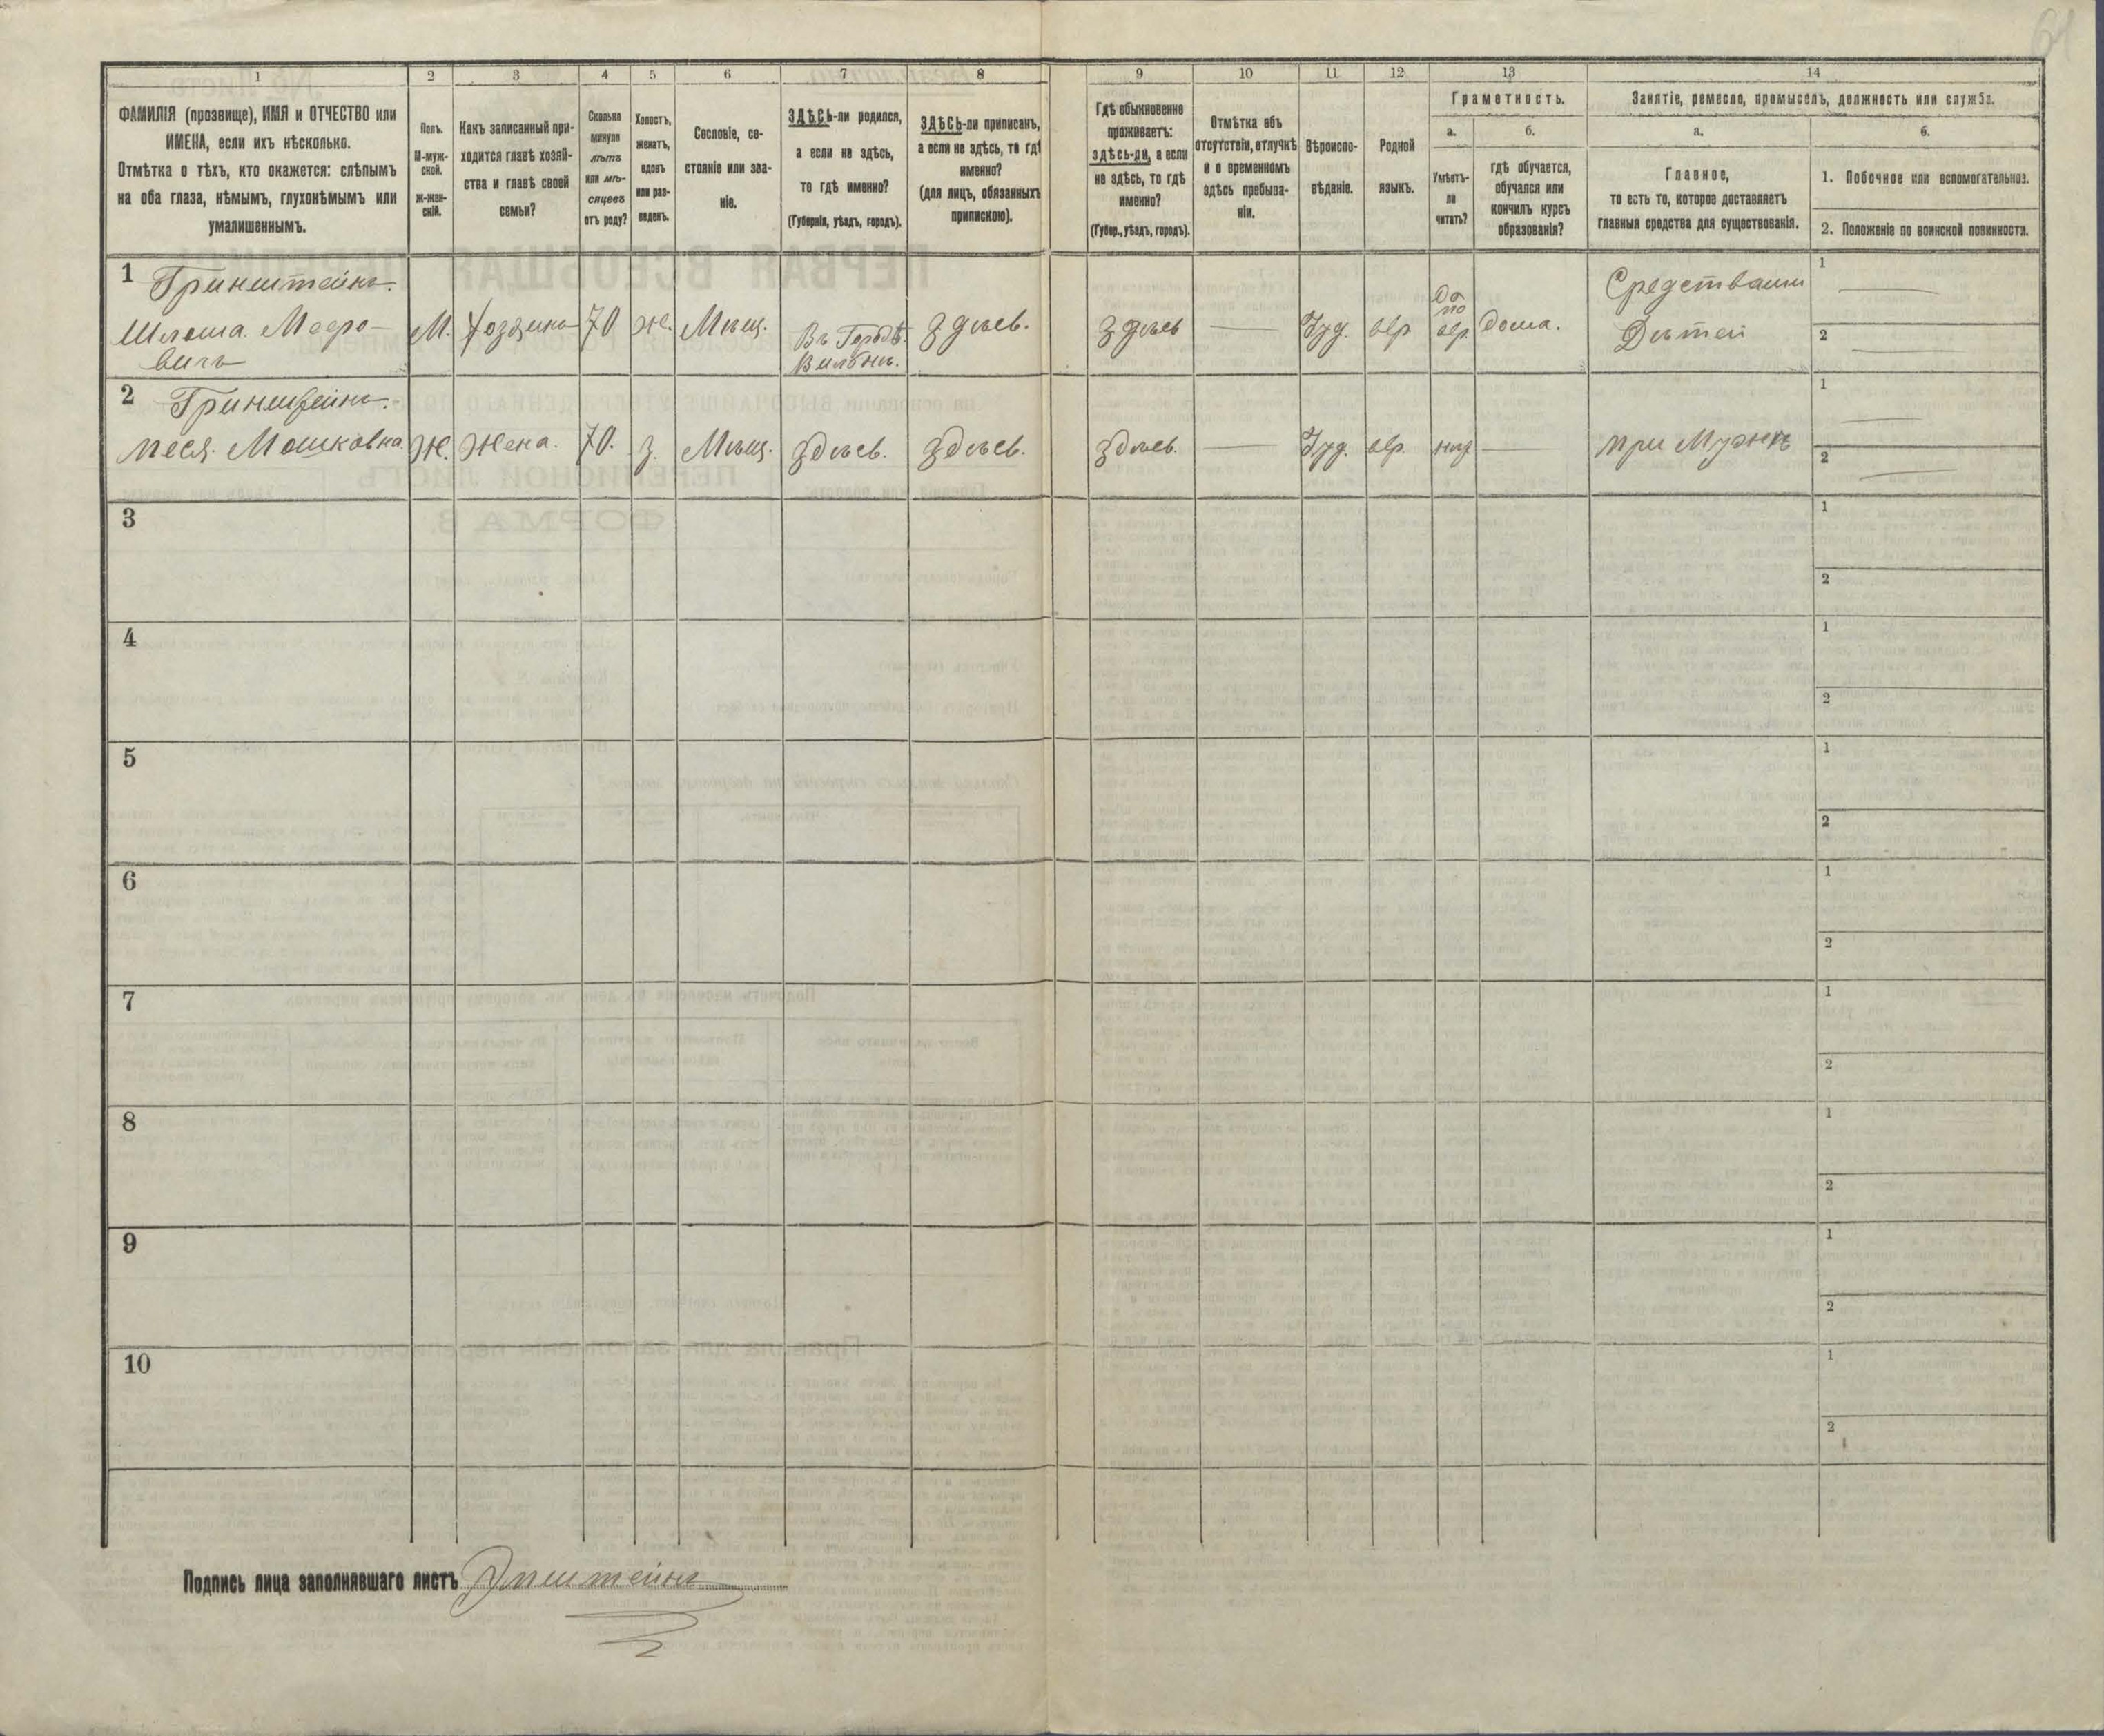 61
1 2 3 4 5 6 7 8 9 10 11 12 13 14
ФАМИЛІЯ (прозвище), ИМЯ и ОТЧЕСТВО или
ИМЕНА, если ихъ нѣсколько.
Отмѣтка о тѣхъ, кто окажется: слѣпымъ
на оба глаза, нѣмымъ, глухонѣмымъ или
умалишеннымъ.
Полъ.
М-муж-
ской.
Ж-жен-
скій.
Какъ записанный при-
ходится главѣ хозяй-
ства и главѣ своей
семьи?
Сколько
минуло
лѣтъ
или мѣ-
сяцевъ
отъ роду?
Холостъ,
женатъ,
вдовъ
или раз-
веденъ.
Сословіе, со-
стояніе или зва-
ніе.
ЗДѢСЬ-ли родился,
а если не здѣсь,
то гдѣ именно?
(Губернія, уѣздъ, городъ).
ЗДѢСЬ-ли приписанъ,
а если не здѣсь, то гдѣ
именно?
(для лицъ, обязанныхъ
припискою).
Гдѣ обыкновенно
проживаетъ:
здѣсь-ли, а если
не здѣсь, то гдѣ
именно?
(Губер., уѣздъ, городъ).
Отмѣтка объ
отсутствіи, отлучкѣ
и о временномъ
здѣсь пребыва-
ніи.
Вѣроиспо-
вѣданіе.
Родной
языкъ.
Грамотность.
а.
Умѣетъ-
ли
читать?
б.
гдѣ обучается,
обучался или
кончилъ курсъ
образованія?
Занятіе, ремесло, промыселъ, должность или служба.
а.
Главное,
то есть то, которое доставляетъ
главныя средства для существованія.
б.
1. Побочное или вспомогательное.
2. Положеніе по воинской повинности.
1 Гринштейнъ.
Шлома. Мееро-
вичъ
М.
Хозяинъ
70
ж.
Мѣщ.
Въ Городѣ.
Вильнѣ.
Здѣсь.
Здѣсь
Іуд.
евр
Да
по
евр.
дома.
Средствами
Дѣтей
1
2
2 Гринштейнъ.
Песя. Мошковна.
Ж.
Жена.
70.
з.
Мѣщ.
Здѣсь.
Здѣсь.
Здѣсь.
Іуд.
евр.
нѣт
при Мужѣ
1
2
3
1
2
4
1
2
5
1
2
6
1
2
7
1
2
8
1
2
9
1
2
10
1
2
Подпись лица заполнявшаго листъ Эпштейнъ